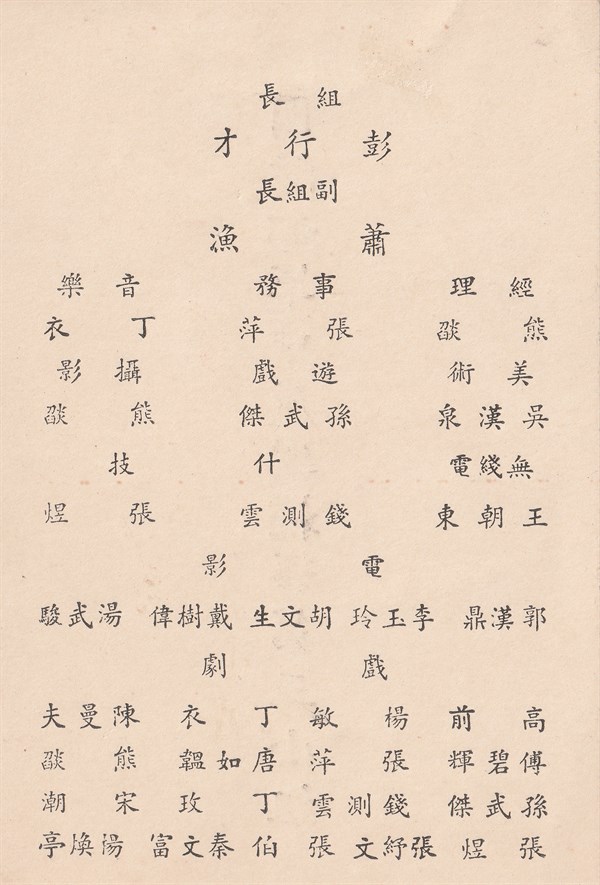 組長
彭行才
副組長
蕭漁
經理 事務 音樂
熊燄 張萍 丁衣
美術 遊戲 攝影
吳漢泉 孫武傑 熊燄
無綫電 什技
王朝東 錢測雲 張煜
電影
郭漢鼎 李玉玲 胡文生 戴樹偉 湯武駿
戲劇
高前 楊敏 丁衣 陳曼夫
傅碧輝 張萍 唐如韞 熊燄
孫武傑 錢測雲 丁玫 宋潮
張煜 張紓文 張伯 秦文富 湯煥亭